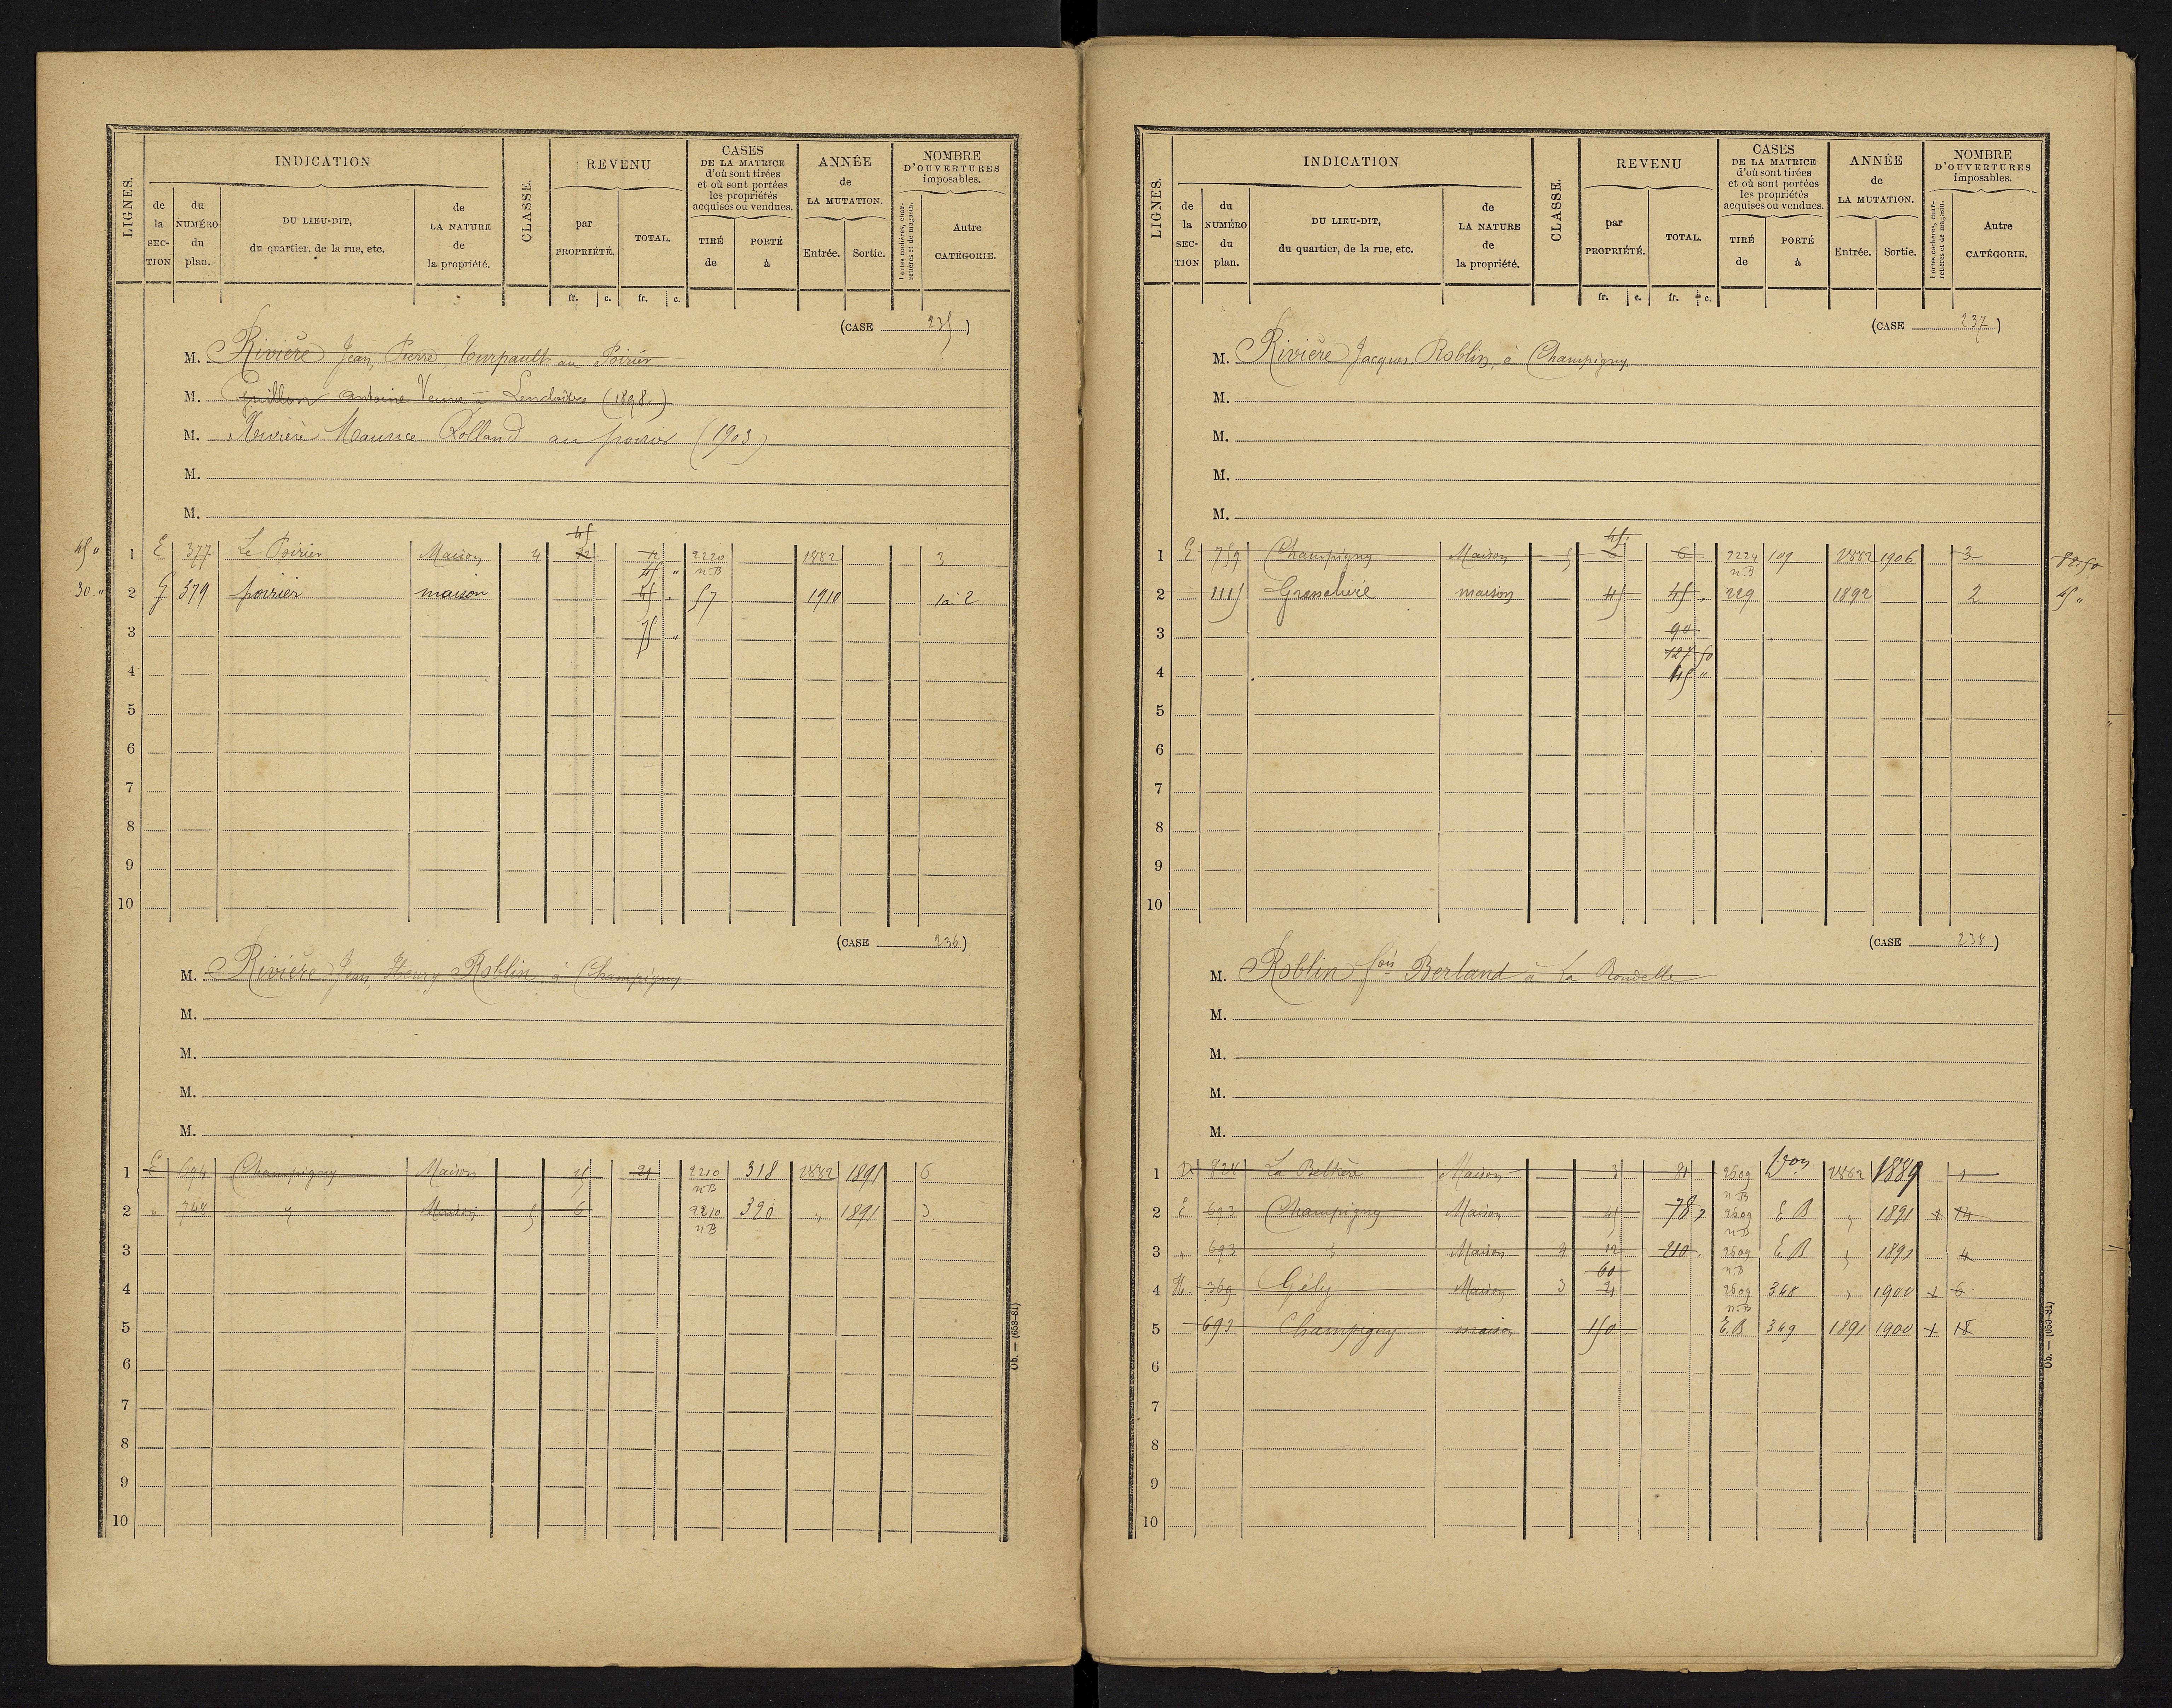 LIGNES. INDICATION CLASSE. REVENU CASES DE LA MATRICE d'où sont tirées et où sont portées les propriétés acquises ou vendues. ANNÉE de LA MUTATION. NOMBRE D'OUVERTURES imposables.
de la SECTION du NUMÉRO du plan. DU LIEU-DIT, du quartier, de la rue, etc. de LA NATURE de la propriété. par PROPRIÉTÉ. TOTAL. TIRÉ de PORTÉ à Entrée. Sortie. Portes cochères, charretières et de magasin. Autre CATÉGORIE.
fr. c. fr. c.
(CASE 235)
M. Rivière Jean, Pierre, Turpault au Poirier
M. Guillon Antoine Veuve à Lencloître (1898)
M. Maurice Rolland au poirier (1903)
M.
M.
45
45 " 1 E 377 Le Poirier Maison 4 12 12 2220 1882 3
45 " n.B
30 " 2 G 379 poirier maison 45 57 1910 1 à 2
3 75 "
4
5
6
7
8
9
10
(CASE 236)
M. Rivière Jean, Henry Roblin, à Champigny.
M.
M.
M.
M.
1 E 694 Champigny Maison 21 2210 318 1882 1891 6
n B
2 " 748 " Maison 5 6 2210 390 " 1891 3
n B
3
4
5
6
7
8
9
10
Ob. — (653-81)
LIGNES. INDICATION CLASSE. REVENU CASES DE LA MATRICE d'où sont tirées et où sont portées les propriétés acquises ou vendues. ANNÉE de LA MUTATION. NOMBRE D'OUVERTURES imposables.
de la SECTION du NUMÉRO du plan. DU LIEU-DIT, du quartier, de la rue, etc. de LA NATURE de la propriété. par PROPRIÉTÉ. TOTAL. TIRÉ de PORTÉ à Entrée. Sortie. Portes cochères, charretières et de magasin. Autre CATÉGORIE.
fr. c. fr. c.
(CASE 237)
M. Rivière Jacques, Roblin, à Champigny.
M.
M.
M.
M.
45
1 E 759 Champigny Maison 5 6 2224 109 1882 1906 3 82.50
n.B
2 1115 Maison 45 45 229 1892 2 45 "
3 90
127 50
4 45 "
5
6
7
8
9
10
(CASE 238)
M. Roblin fois Berland à La Rondelle
M.
M.
M.
M.
1 D 824 Maison 3 81 2609 Von 1882 1889 1
n.B
2 E 693 Champigny Maison 78 2609 E B " 1891 14
n B
3 " 693 " Maison 4 12 210 2609 E B " 1891 4
60 n.B
4 H. 369 Gély Maison 3 21 2609 348 " 1900 6
n.B
5 693 Champigny maison 150 E.B 349 1891 1900 18
6
7
8
9
10
Ob. — (653-81)